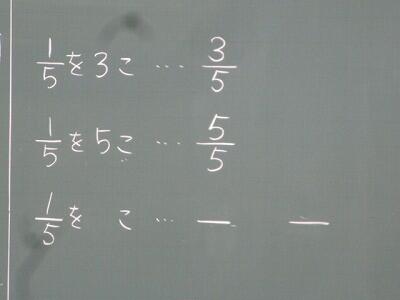 1/5を3こ … 3/5
1/5を5こ … 5/5
1/5を こ … — —